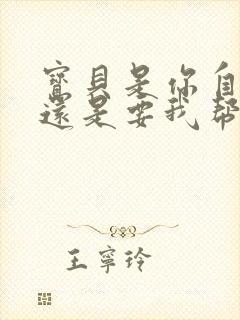 寶貝是你自
還是要我幫
王寧玲